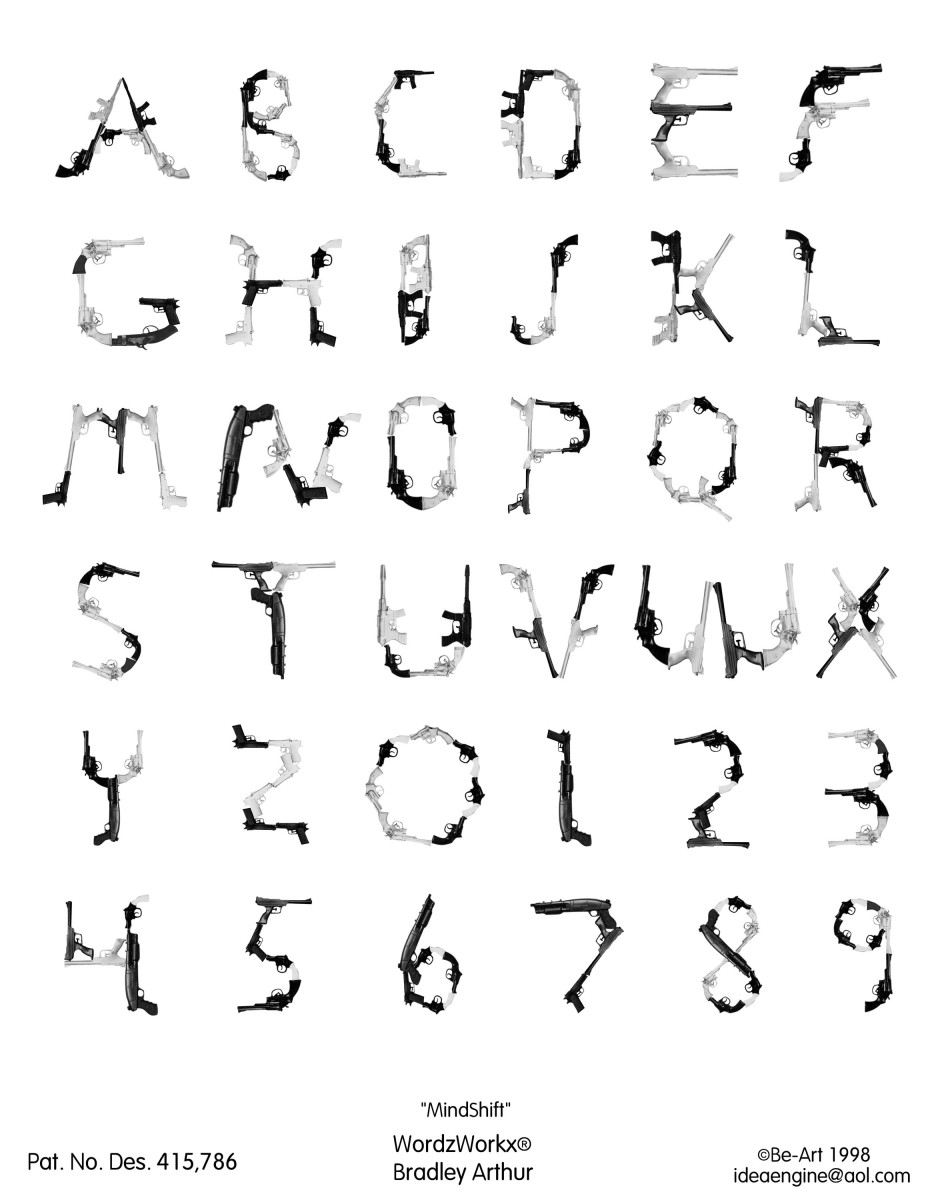 A B C D E F
G H I J K L
M N O P Q R
S T U V W X
Y Z 0 1 2 3
4 5 6 7 8 9
"MindShift"
WordzWorkx®
Bradley Arthur
Pat. No. Des. 415,786
©Be-Art 1998
ideaengine@aol.com